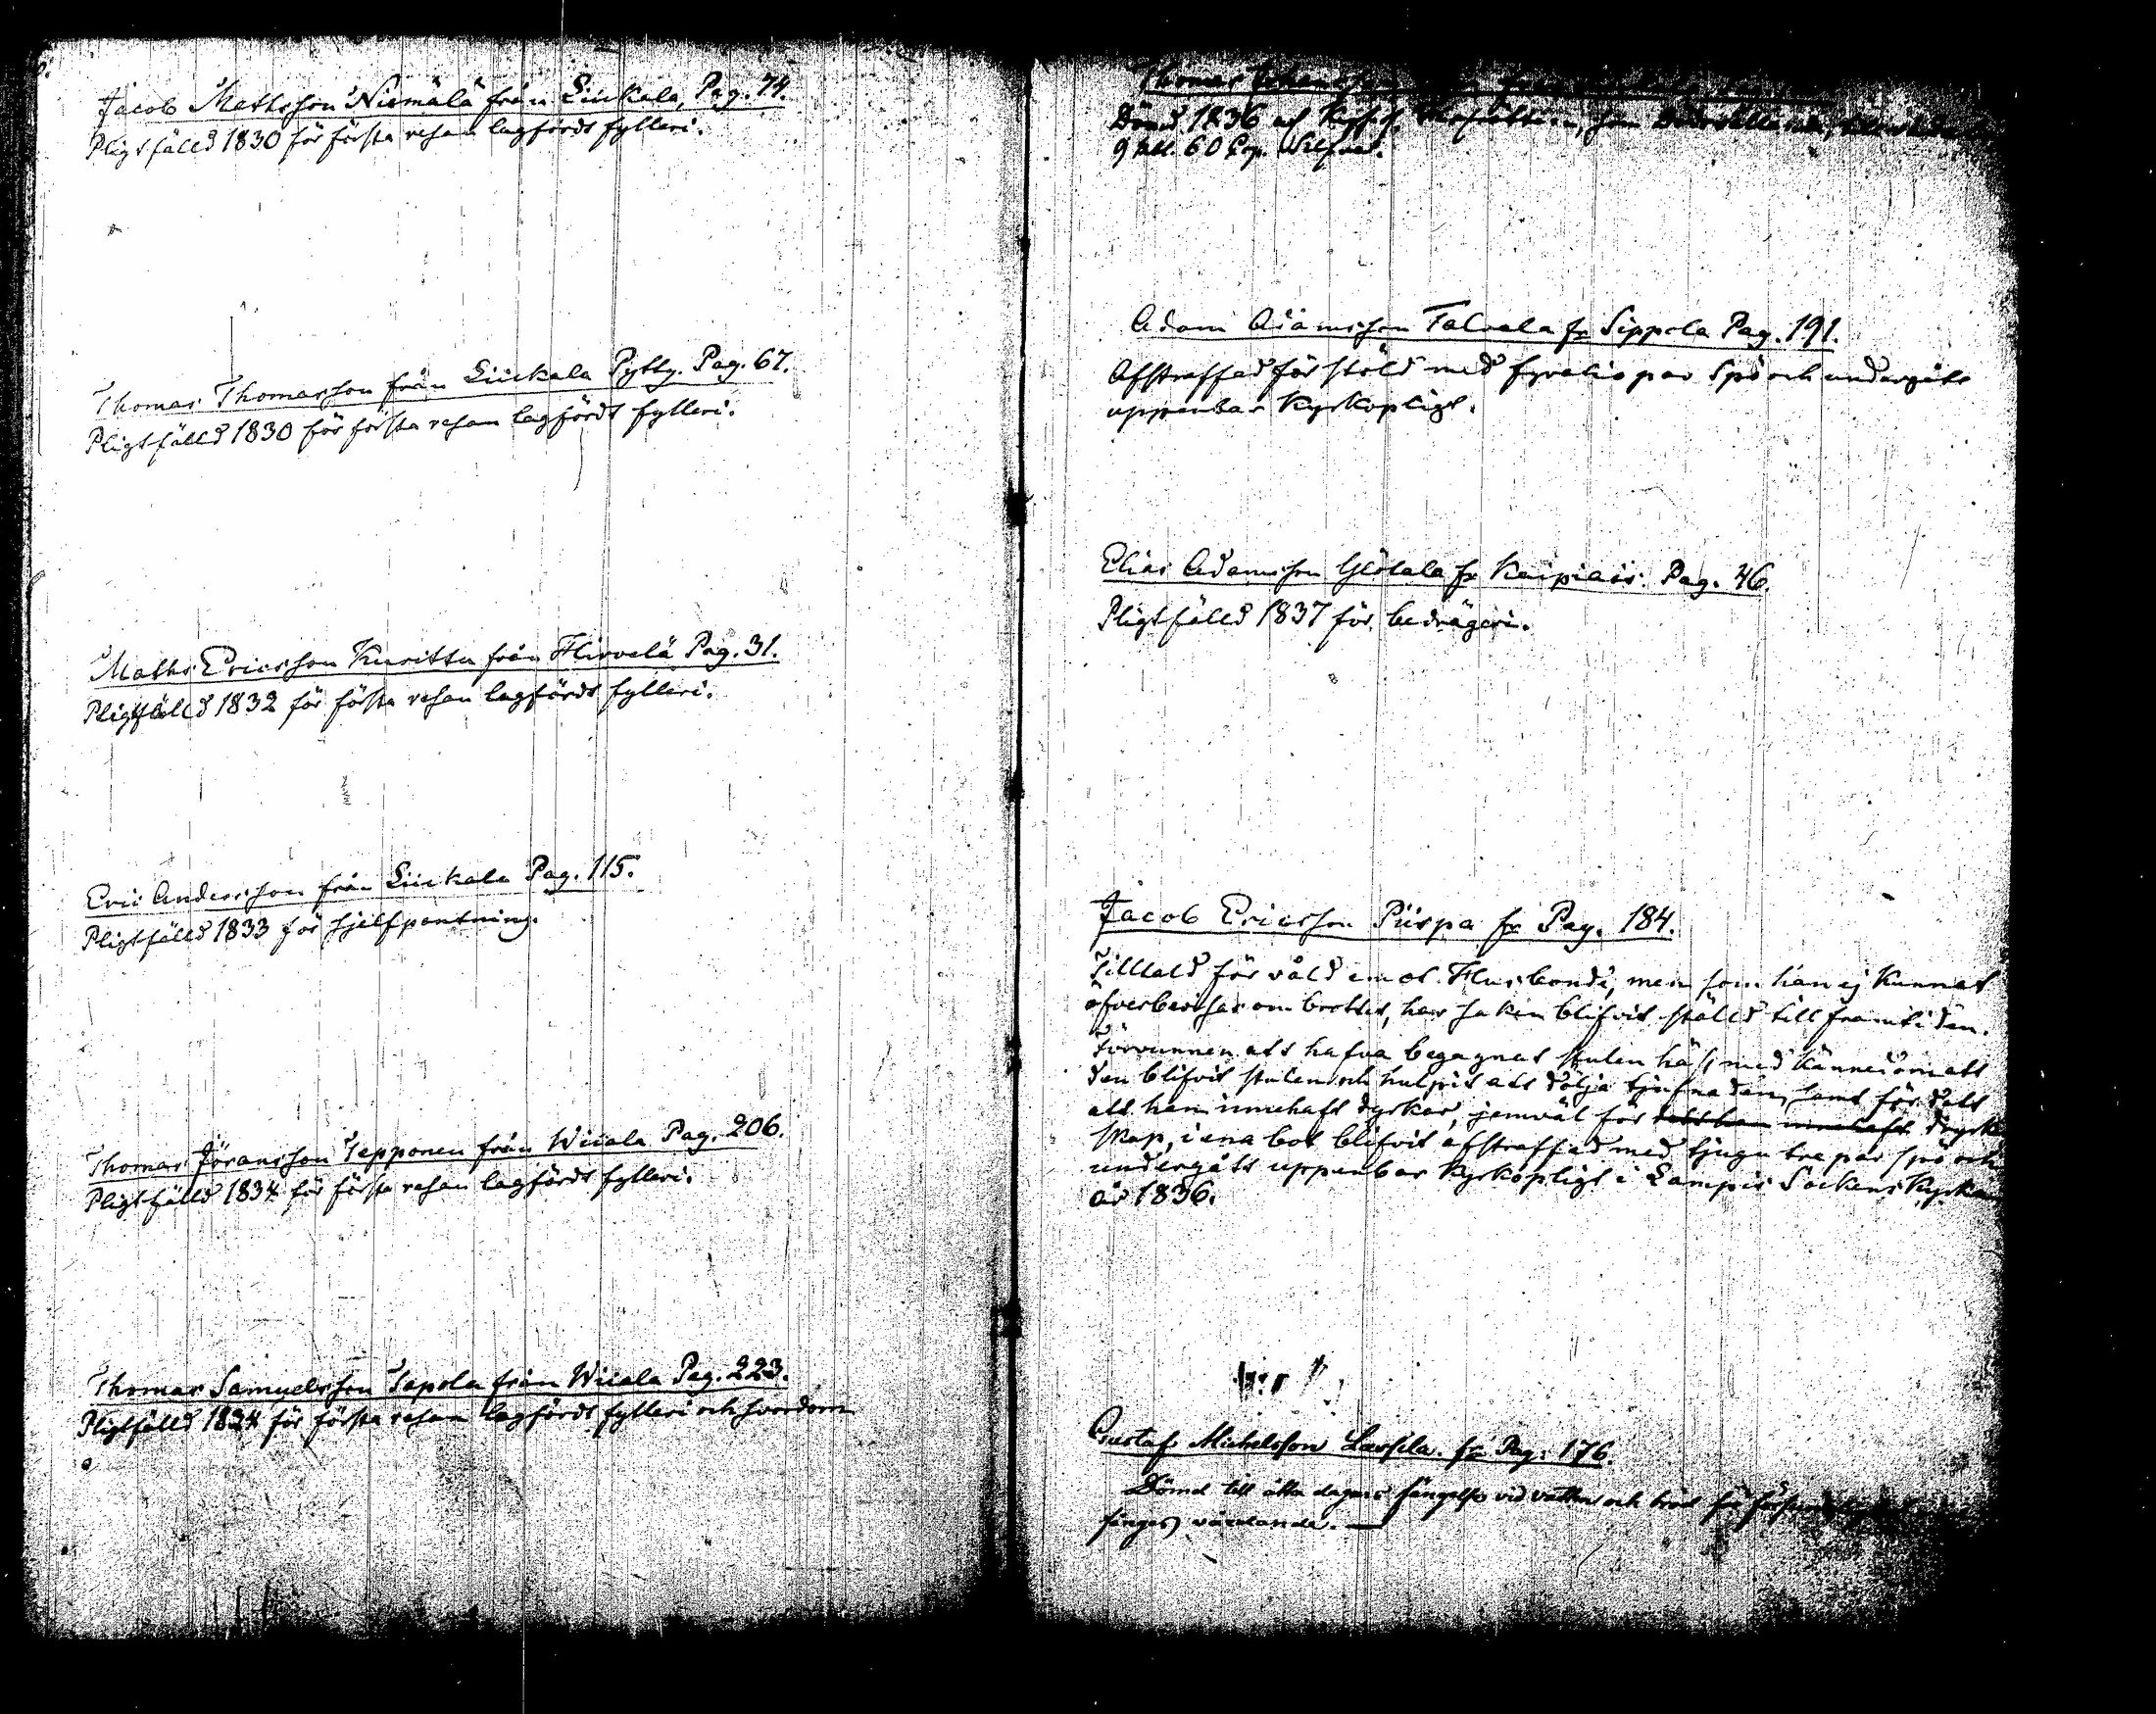 Jacob Mathsson Niemälä från Liickala, Pag. 74.
Pligtfälld 1830 för första resan lagfördt fylleri.
Thomas Thomasson från Liickala Pytty. Pag. 67.
Pligtfälld 1830 för första resan lagfördt fylleri.
Maths Ericsson Kuritta från Hirvelä Pag. 31.
Pligtfälld 1832 för första resan lagfördt fylleri.
Eric Andersson från Liickala Pag. 115.
Pligtfälld 1833 för sjelfpantning.
Thomas Jöransson Tepponen från Wiiala Pag. 206.
Pligtfälld 1834 för första resan lagfördt fylleri.
Thomas Samuelsson Tapola från Wiiala Pag. 223.
Pligtfälld 1834 för första resan lagfördt fylleri och svordom
Thomas
Dömd 1836 af
9 Rbl. 60 Cop. Silfver.
Adam Adamsson Talvela fr Sippola Pag. 191.
Afstraffad för stöld med fyratio par Spö och undergått
uppenbar Kyrkopligt.
Elias Adamsson Ylötalo fr Kaipiais. Pag. 46.
Pligtfälld 1837 för bedrägeri.
Jacob Ericsson Piispa fr Pag. 184.
Tilltald för våld emot Husbonde, men som han ej kunnat
öfverbevisas om brottet, har saken blifvit ställd till framtiden.
Förvunnen att hafva begagnat stulen häst med kännedom att
den blifvit stulen och hulpit att dölja tjufnaden, samt för det
att han innehaft dyrkar, jemväl för dett han innehaft
skap, i ena bot blifvit afstraffad med tjugu tre par spö och
undergått uppenbar Kyrkopligt i Lampis Sockens Kyrka
år 1836.
Gustaf Michelsson Lassila fr Pag. 176.
Dömd till åtta dagars fängelse vid vatten och bröd för
fånges vårdande.